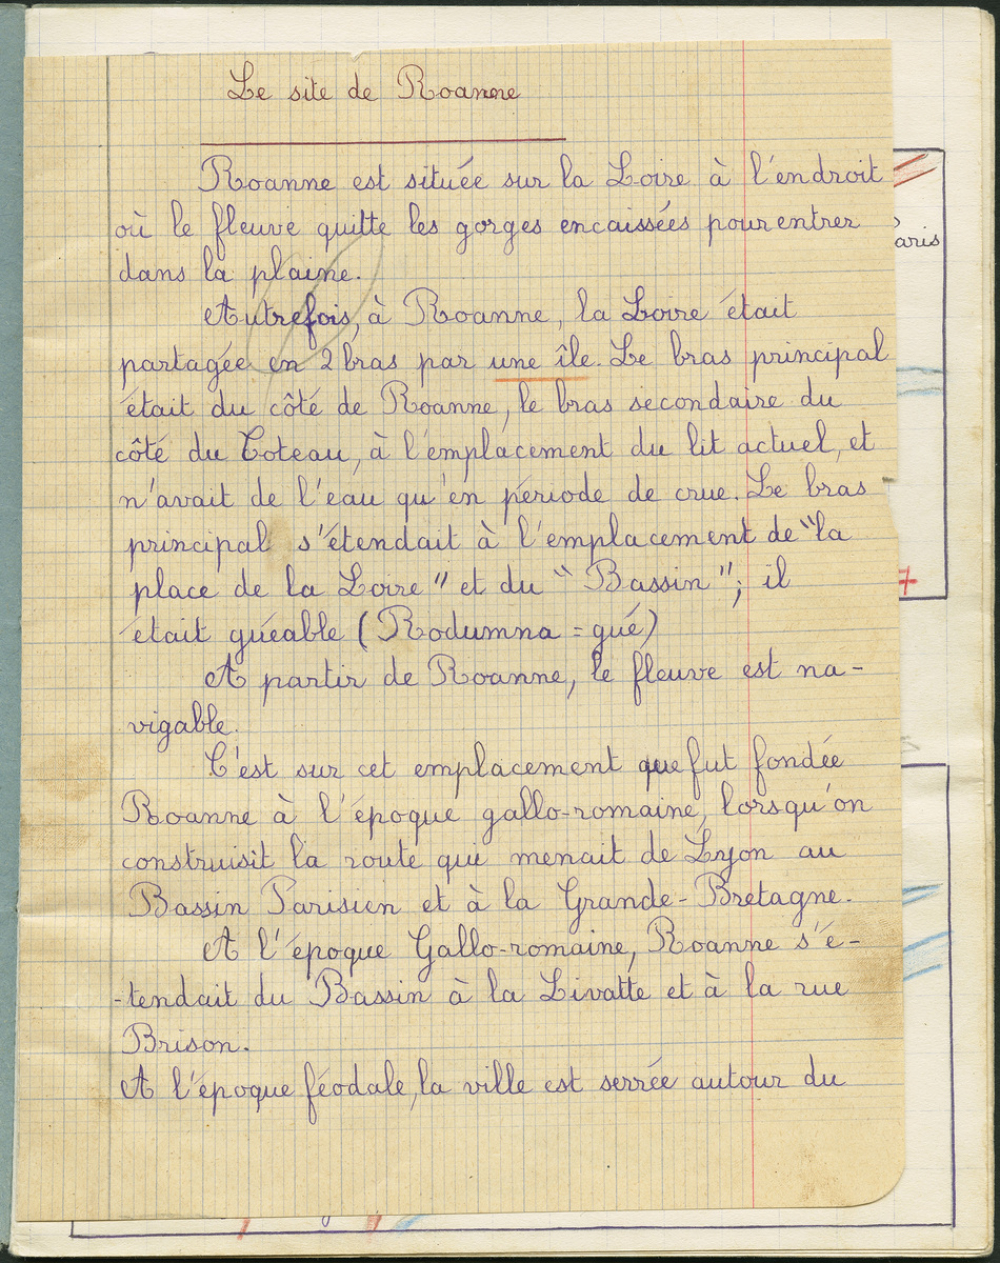 Le site de Roanne
Roanne est située sur la Loire à l'endroit
où le fleuve quitte les gorges encaissées pour entrer
dans la plaine.
Autrefois, à Roanne, la Loire était
partagée en 2 bras par une île. Le bras principal
était du côté de Roanne, le bras secondaire du
côté du Coteau, à l'emplacement du lit actuel, et
n'avait de l'eau qu'en période de crue. Le bras
principal s'étendait à l'emplacement de "la
place de la Loire" et du "Bassin"; il
était guéable (Rodumna = gué)
A partir de Roanne, le fleuve est na-
vigable.
C'est sur cet emplacement que fut fondée
Roanne à l'époque gallo-romaine, lorsqu'on
construisit la route qui menait de Lyon au
Bassin Parisien et à la Grande-Bretagne.
A l'époque Gallo-romaine, Roanne s'é-
-tendait du Bassin à la Livatte et à la rue
Brison.
A l'époque féodale, la ville est serrée autour du
aris